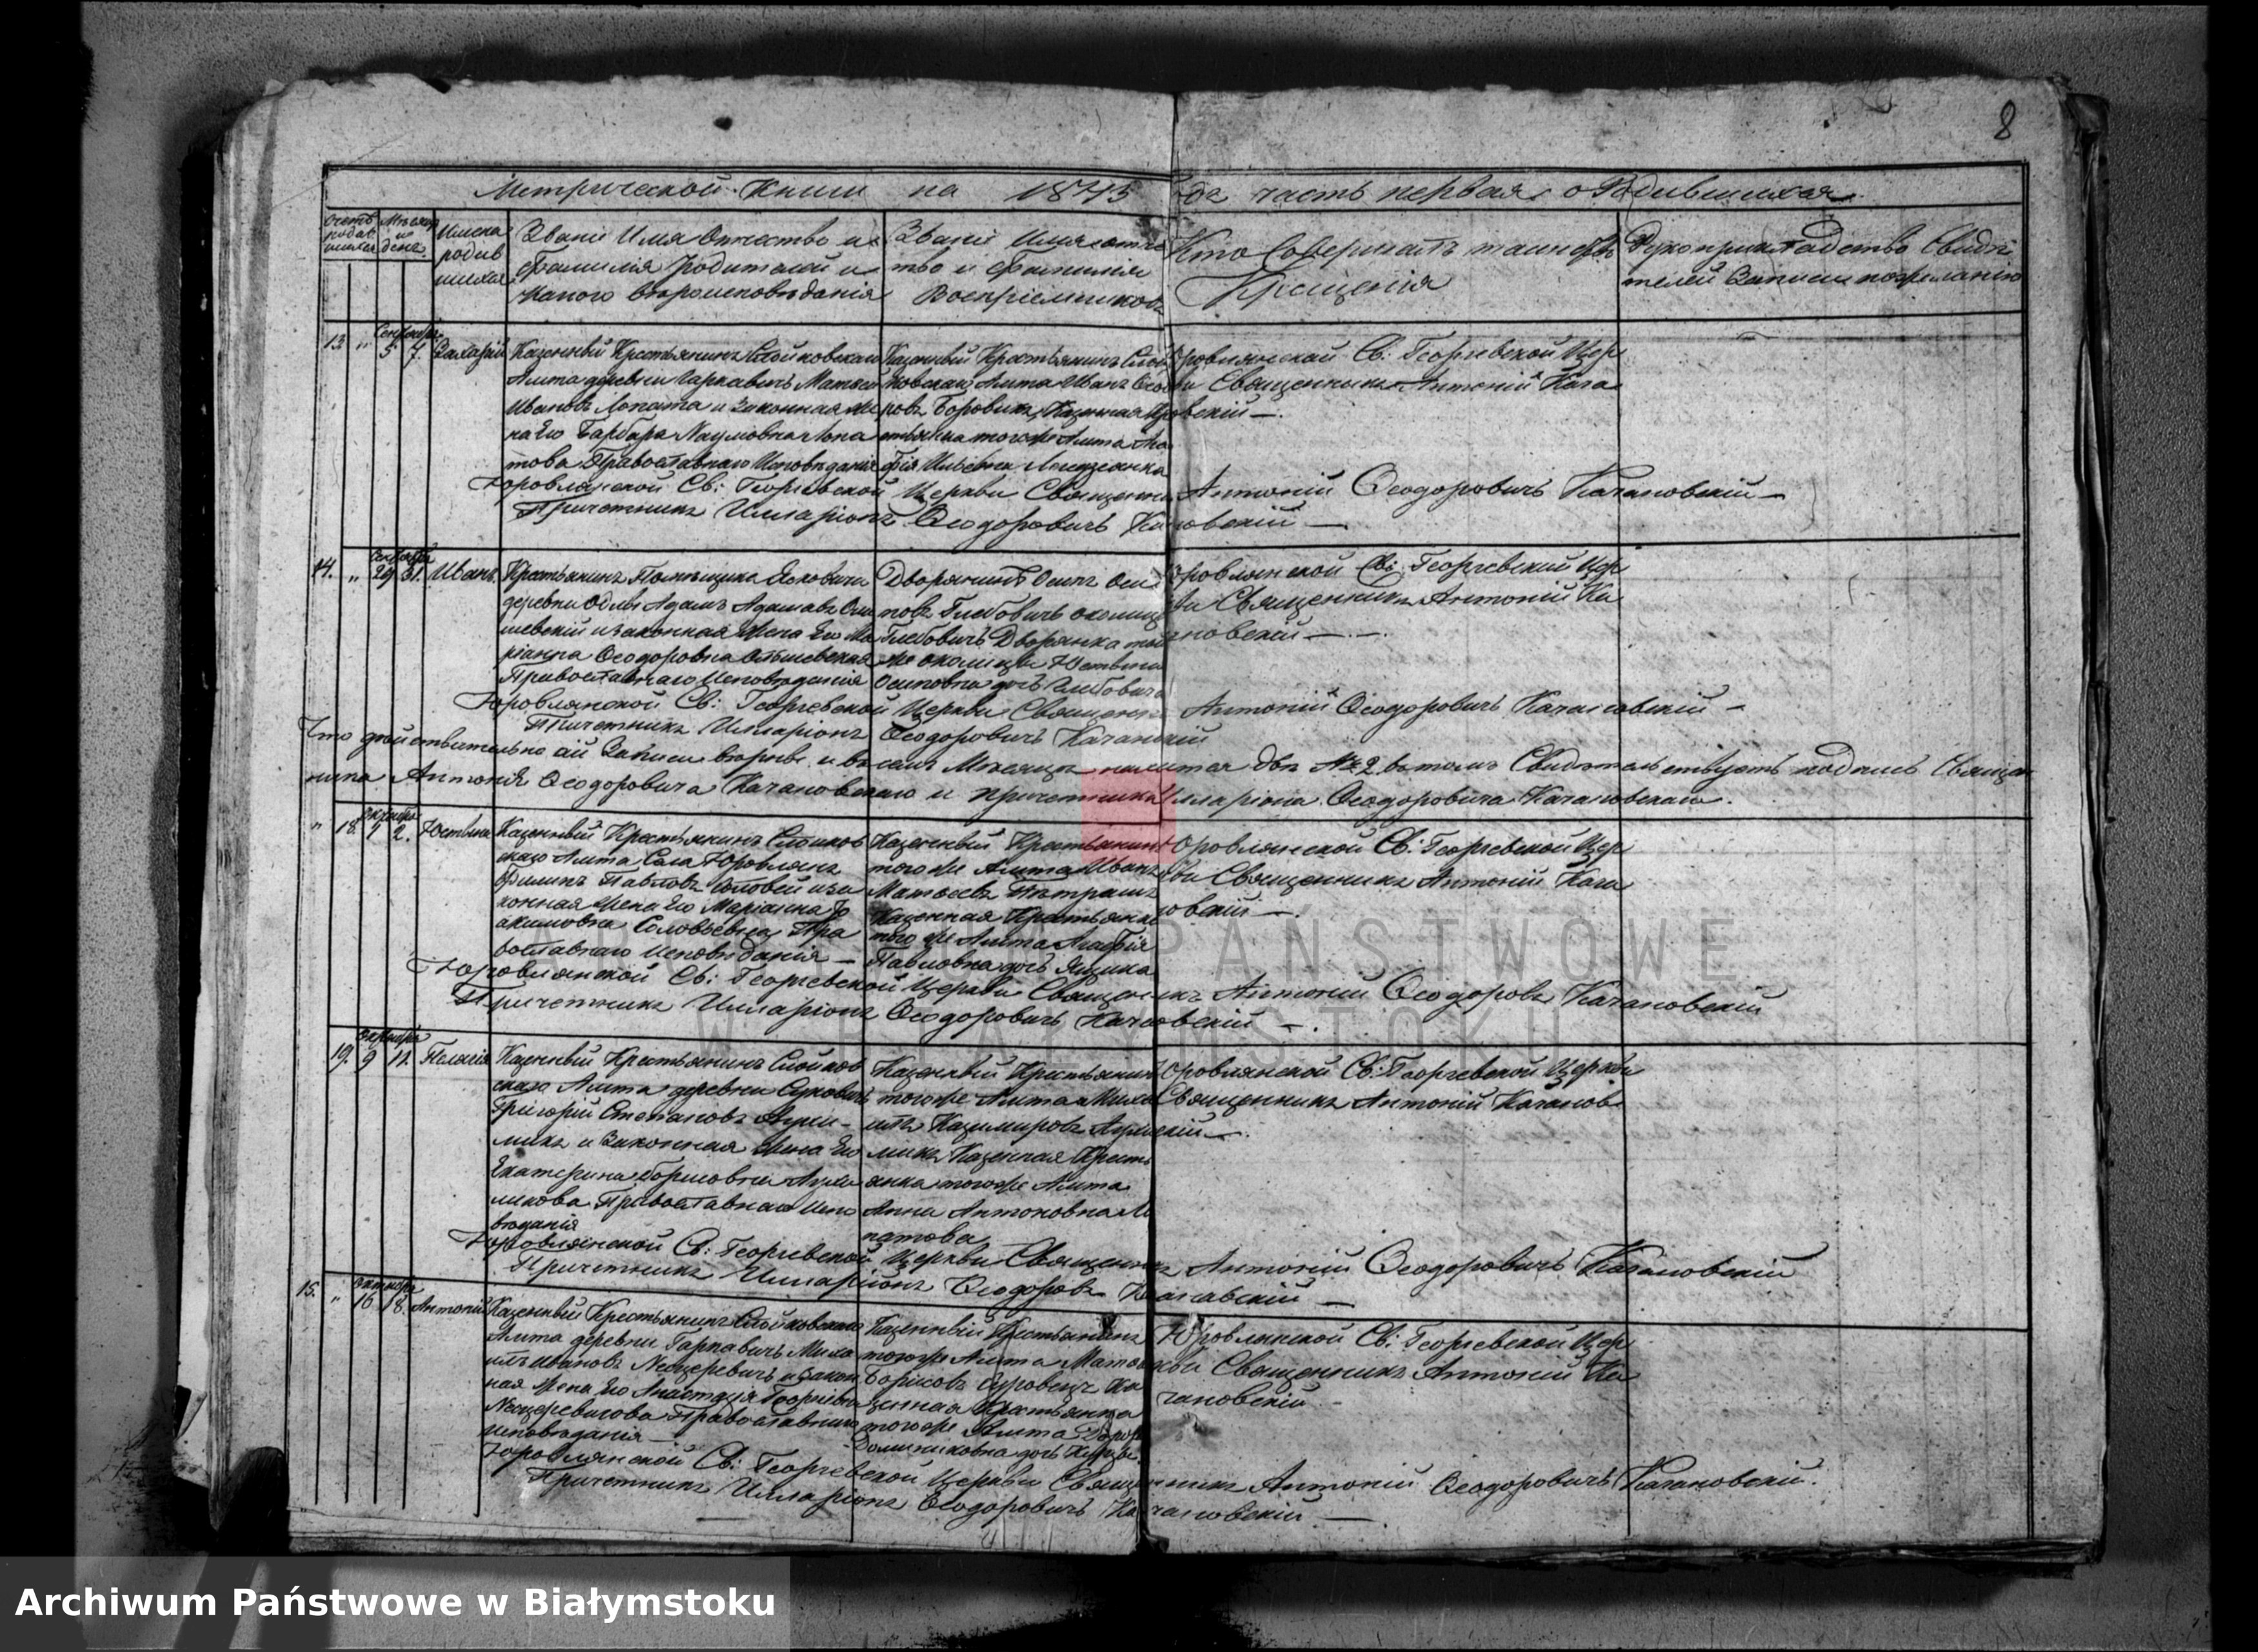 8
Метрической Книги на 1843 года часть первая о Родившихся
Счетъ родившихся
Мѣсяцъ и день
Имена родившихся
Званіе Имя Отчество и
Фамилія Родителей и
какого вѣроисповѣданія
Званіе Имя отче
тво и Фамилія
Воспріемниковъ
Кто Совершалъ таинство
Крещенія
Рукоприкладство Свидѣ
телей Записи по желанію
13. " 5 7. Захарій
Казенный Крестьянинъ Слойковскаго
Амта деревни Гаркавичъ Матвей
Ивановъ Лопата и законная же
на Его Барбара Наумовна Лопа
това Православнаго Исповѣданія
Казенный Крестьянинъ Слой
ковскаго Амта Иванъ
ровъ Боровикъ, Казенная Кре
стьянка того же Амта
фія
Юровлянской Св: Георгіевской Цер
кви Священникъ Антоній Кача
новскій —.
Юровлянской Св: Георгіевской Церкви Священникъ Антоній Ѳеодоровичъ Качановскій —
Причетникъ Илларіонъ Ѳеодоровичъ Качановскій —
14. " 29 31. Иванъ
Крестьянинъ Помѣщика
деревни Адамъ Адамовъ Оль
шевскій и законная Жена Его Ма
ріанна Ѳеодоровна Ольшевская
Православнаго Исповѣданія
Дворянинъ Осипъ Оси
повъ Глебовичъ околицы
Глебовичъ Дворянка той
же околицы Юстина
Осиповна дочь Глебовича
Юровлянской Св: Георгіевской Цер
кви Священникъ Антоній Ка
чановскій —.—.
Юровлянской Св: Георгіевской Церкви Священникъ Антоній Ѳеодоровичъ Качановскій —
Причетникъ Илларіонъ Ѳеодоровичъ Качановскій
Что дѣйствительно сіи Записи вѣрны и въ семъ Мѣсяцѣ имѣется двѣ № 2 въ томъ Свидѣтельствуетъ подпись Священ
ника Антонія Ѳеодоровича Качановскаго и причетника Илларіона Ѳеодоровича Качановскаго.
" 18. Октября 1 2. Юстына
Казенный Крестьянинъ Слойков
скаго Амта Села Юровлянъ
Филипъ Павловъ Соловей и за
конная Жена Его Маріанна Іо
акимовна Соловьевна Пра
вославнаго Исповѣданія —
Казенный Крестьянинъ
того же Амта Иванъ
Матвеевъ Петрашъ
Казенная Крестьянка
того же Амта Агафія
Павловна дочь
Юровлянской Св: Георгіевской Цер
кви Священникъ Антоній Кача
новскій —.
Юровлянской Св: Георгіевской Церкви Священникъ Антоній Ѳеодоровъ Качановскій
Причетникъ Илларіонъ Ѳеодоровичъ Качановскій —.
19. Октября 9 11. Пелагія
Казенный Крестьянинъ Слойков
скаго Амта деревни Суковичъ
Григорій Степановъ
микъ и Законная Жена Его
Екатерина Борисовна
микова Православнаго Испо
вѣданія
Казенный Крестьянинъ
того же Амта Миха
илъ Казимировъ
микъ Казенная Кресть
янка того же Амта
Анна Антоновна Ло
патова
Юровлянской Св: Георгіевской Церкви
Священникъ Антоній Качанов
скій —.
Юровлянской Св: Георгіевской Церкви Священникъ Антоній Ѳеодоровичъ Качановскій
Причетникъ Илларіонъ Ѳеодоровъ Качановскій —
15. " Октября 16 18. Антоній
Казенный Крестьянинъ Слойковскаго
Амта деревни Гаркавичъ Миха
илъ Ивановъ Несцеревичъ и закон
ная Жена Его Анастасія Георгіевна
Несцеревичова Православнаго
исповѣданія —
Казенный Крестьянинъ
того же Амта Матвей
Борисовъ Суровецъ Ка
зенная Крестьянка
того же Амта
Доминиковна дочь
Юровлянской Св: Георгіевской Цер
кви Священникъ Антоній Ка
чановскій
Юровлянской Св: Георгіевской Церкви Священникъ Антоній Ѳеодоровичъ Качановскій.
Причетникъ Илларіонъ Ѳеодоровичъ Качановскій —.
PAŃSTWOWE
W BIAŁYMSTOKU
Archiwum Państwowe w Białymstoku